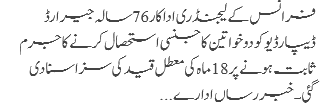 فرانس کے لیجنڈری اداکار 76 سالہ جیرارڈ
ڈیپارڈیو کو دو خواتین کا جنسی استحصال کرنے کا جرم
ثابت ہونے پر 18 ماہ کی معطل قید کی سزا سنا دی
گئی۔ خبر رساں ادارے...